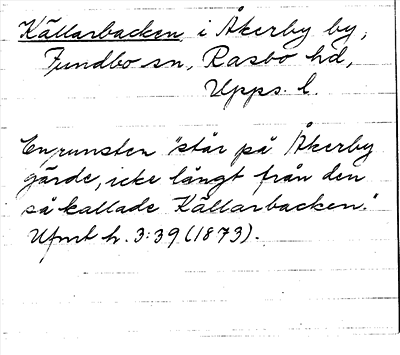 Källarbacken i Åkerby by,
Fundbo sn, Rasbo hd,
Upps. l.
En runsten "står på Åkerby
gärde, icke långt från den
så kallade Källarbacken."
Ufmt h. 3:39 (1873).